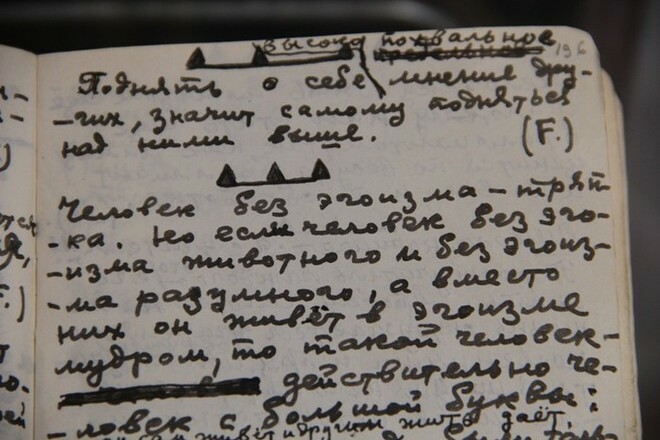 высоко похвальное
196
Поднять о себе мнение дру-
-гих, значит самому подняться
над ними выше. (F.)
Человек без эгоизма – тряп-
-ка. Но если человек без эго-
-изма животного и без эгоиз-
-ма разумного, а вместо
них он живёт в эгоизме
мудром, то такой человек –
действительно че-
-ловек с большой буквы:
живёт и другим жить даёт,